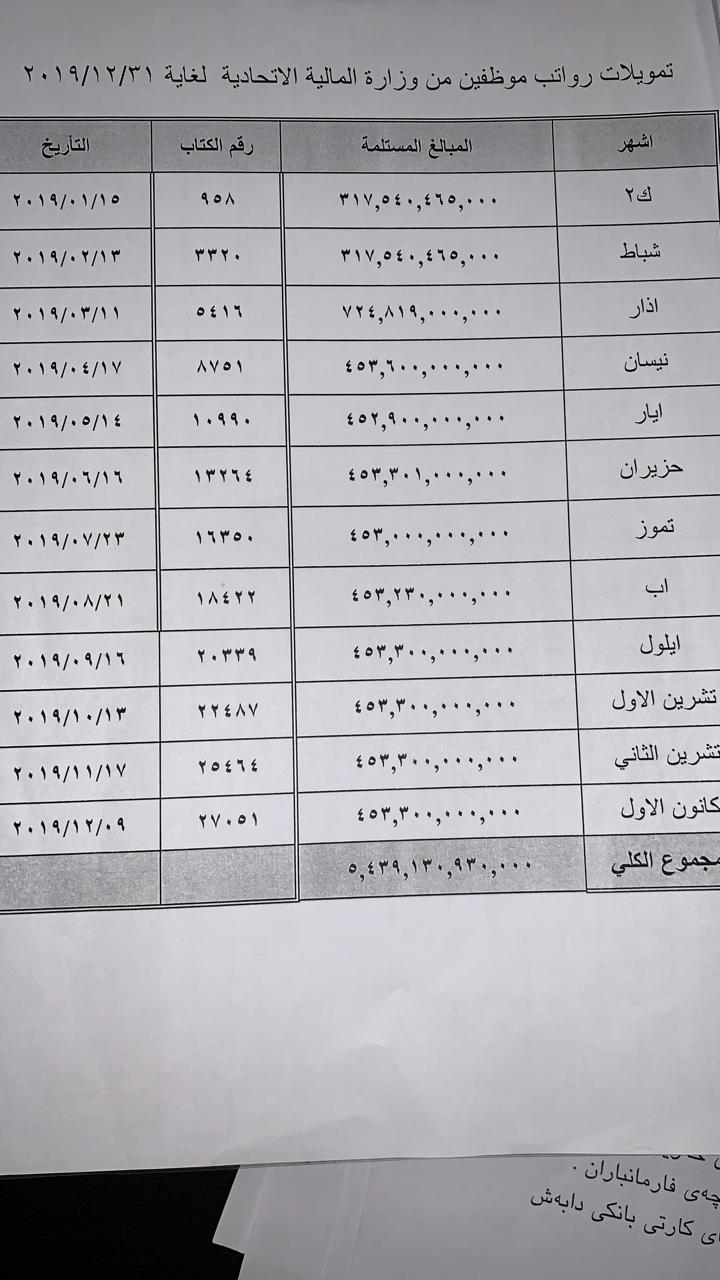 تمويلات رواتب موظفين من وزارة المالية الاتحادية لغاية ٢٠١٩/١٢/٣١
اشهر المبالغ المستلمة رقم الكتاب التأريخ
ك٢ ٣١٧,٥٤٠,٤٦٥,٠٠٠ ٩٥٨ ٢٠١٩/٠١/١٥
شباط ٣١٧,٥٤٠,٤٦٥,٠٠٠ ٣٣٢٠ ٢٠١٩/٠٢/١٣
اذار ٧٢٤,٨١٩,٠٠٠,٠٠٠ ٥٤١٦ ٢٠١٩/٠٣/١١
نيسان ٤٥٣,٦٠٠,٠٠٠,٠٠٠ ٨٧٥١ ٢٠١٩/٠٤/١٧
ايار ٤٥٢,٩٠٠,٠٠٠,٠٠٠ ١٠٩٩٠ ٢٠١٩/٠٥/١٤
حزيران ٤٥٣,٣٠١,٠٠٠,٠٠٠ ١٣٢٦٤ ٢٠١٩/٠٦/١٦
تموز ٤٥٣,٠٠٠,٠٠٠,٠٠٠ ١٦٣٥٠ ٢٠١٩/٠٧/٢٣
اب ٤٥٣,٢٣٠,٠٠٠,٠٠٠ ١٨٤٢٢ ٢٠١٩/٠٨/٢١
ايلول ٤٥٣,٣٠٠,٠٠٠,٠٠٠ ٢٠٣٣٩ ٢٠١٩/٠٩/١٦
تشرين الاول ٤٥٣,٣٠٠,٠٠٠,٠٠٠ ٢٢٤٨٧ ٢٠١٩/١٠/١٣
تشرين الثاني ٤٥٣,٣٠٠,٠٠٠,٠٠٠ ٢٥٤٦٤ ٢٠١٩/١١/١٧
كانون الاول ٤٥٣,٣٠٠,٠٠٠,٠٠٠ ٢٧٠٥١ ٢٠١٩/١٢/٠٩
مجموع الكلي ٥,٤٣٩,١٣٠,٩٣٠,٠٠٠
فارمانباران .
کارتی بانکی دابەش